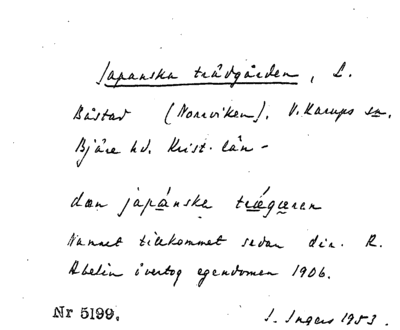 Japanska trädgården, L.
Båstad (Norrviken). V. Karups sn.
Bjäre hd. Krist. län -
dæn japánske trǽgɑren
Namnet tillkommet sedan dir. R.
Abelin övertog egendomen 1906.
Nr 5199. I. Ingers 1953.